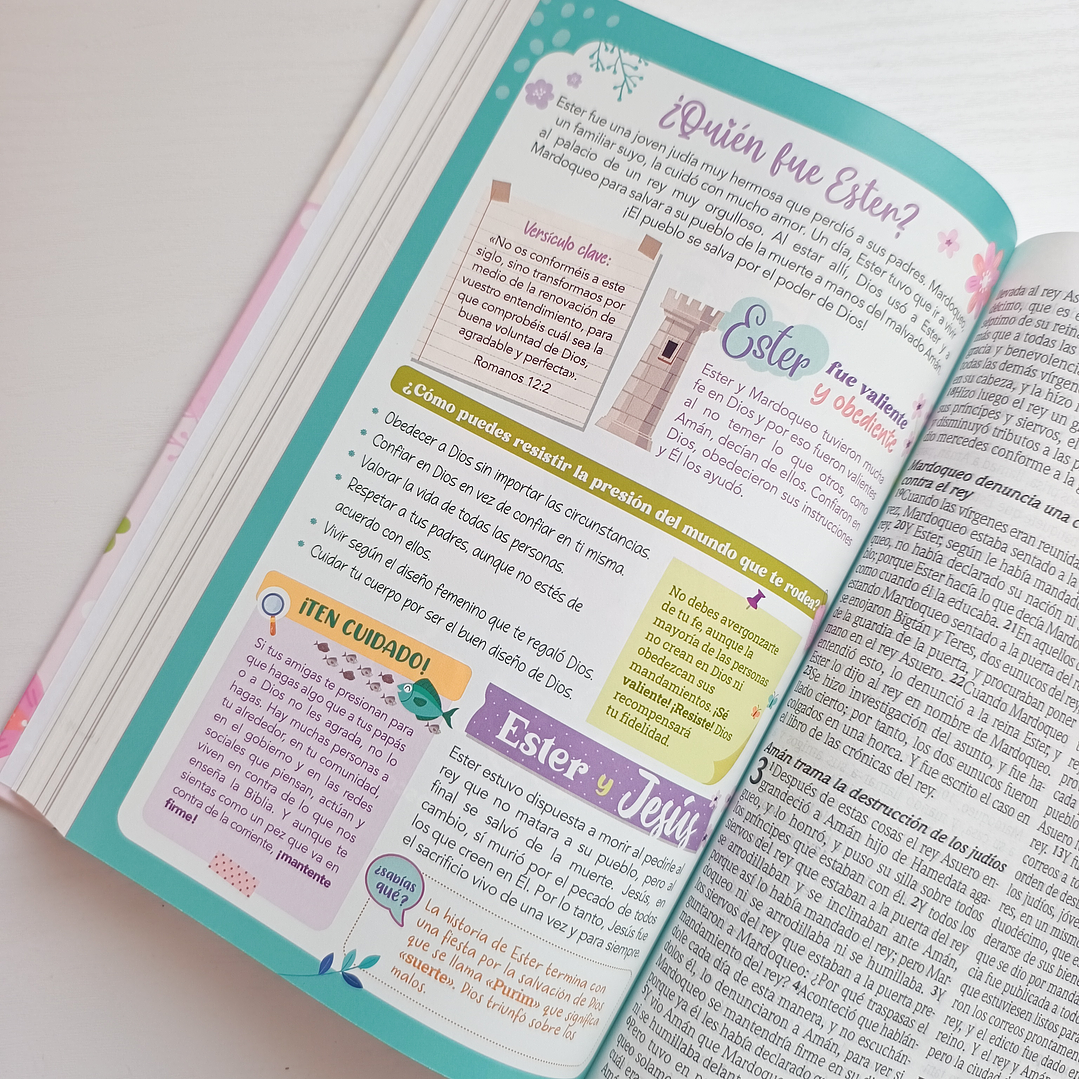 ¿Quién fue Ester?
Ester fue una joven judía muy hermosa que perdió a sus padres. Mardoqueo,
un familiar suyo, la cuidó con mucho amor. Un día, Ester tuvo que ir a vivir
al palacio de un rey muy orgulloso. Al estar allí, Dios usó a Ester y a
Mardoqueo para salvar a su pueblo de la muerte a manos del malvado Amán.
¡El pueblo se salva por el poder de Dios!
Versículo clave:
«No os conforméis a este
siglo, sino transformaos por
medio de la renovación de
vuestro entendimiento, para
que comprobéis cuál sea la
buena voluntad de Dios,
agradable y perfecta».
Romanos 12:2
Ester
fue valiente
y obediente
Ester y Mardoqueo tuvieron mucha
fe en Dios y por eso fueron valientes
al no temer lo que otros, como
Amán, decían de ellos. Confiaron en
Dios, obedecieron sus instrucciones
y Él los ayudó.
¿Cómo puedes resistir la presión del mundo que te rodea?
Obedecer a Dios sin importar las circunstancias.
Confiar en Dios en vez de confiar en ti misma.
Valorar la vida de todas las personas.
Respetar a tus padres, aunque no estés de
acuerdo con ellos.
Vivir según el diseño femenino que te regaló Dios.
Cuidar tu cuerpo por ser el buen diseño de Dios.
No debes avergonzarte
de tu fe, aunque la
mayoría de las personas
no crean en Dios ni
obedezcan sus
mandamientos. ¡Sé
valiente! ¡Resiste! Dios
recompensará
tu fidelidad.
¡TEN CUIDADO!
Si tus amigas te presionan para
que hagas algo que a tus papás
o a Dios no les agrada, no lo
hagas. Hay muchas personas a
tu alrededor, en tu comunidad,
en el gobierno y en las redes
sociales que piensan, actúan y
viven en contra de lo que nos
enseña la Biblia. Y aunque te
sientas como un pez que va en
contra de la corriente, ¡mantente
firme!
Ester y Jesús
Ester estuvo dispuesta a morir al pedirle al
rey que no matara a su pueblo, pero al
final se salvó de la muerte. Jesús, en
cambio, sí murió por el pecado de todos
los que creen en Él. Por lo tanto, Jesús fue
el sacrificio vivo de una vez y para siempre.
¿sabías
qué?
La historia de Ester termina con
una fiesta por la salvación de Dios
que se llama «Purim» que significa
«suerte». Dios triunfó sobre los
malos.
llevada al rey
décimo, que es e
séptimo de su rein
más que a todas las
gracia y benevolenci
todas las demás vírgen
en su cabeza, y la hizo
Hizo luego el rey un g
sus príncipes y siervos, el
disminuyó tributos a las p
mercedes conforme a la
Mardoqueo denuncia una c
contra el rey
Cuando las vírgenes eran reunida
vez, Mardoqueo estaba sentado a la
rey. 20Y Ester, según le había mandad
queo, no había declarado su nación ni
porque Ester hacía lo que decía Mardo
como cuando él la educaba. 21En aquello
estando Mardoqueo sentado a la puerta del
se enojaron Bigtán y Teres, dos eunucos del rey
de la guardia de la puerta, y procuraban poner
mano en el rey Asuero. 22Cuando Mardoqueo
entendió esto, lo denunció a la reina Ester, y
Ester lo dijo al rey en nombre de Mardoqueo.
Se hizo investigación del asunto, y fue ha
llado cierto; por tanto, los dos eunucos fueron
colgados en una horca. Y fue escrito el caso en
el libro de las crónicas del rey.
Amán trama la destrucción de los judíos
3 Después de estas cosas el rey Asuero en-
grandeció a Amán hijo de Hamedata aga-
gueo, y lo honró, y puso su silla sobre todos
los príncipes que estaban con él. 2Y todos los
siervos del rey que estaban a la puerta del rey
se arrodillaban y se inclinaban ante Amán,
porque así lo había mandado el rey; pero Mar-
doqueo ni se arrodillaba ni se humillaba. 3Y
los siervos del rey que estaban a la puerta pre-
guntaron a Mardoqueo: ¿Por qué traspasas el
mandamiento del rey? 4Aconteció que hablán-
dole cada día de esta manera, y no escuchán-
doles él, lo denunciaron a Amán, para ver si
Mardoqueo se mantendría firme en su
porque ya él les había declarado que
Y vio Amán que Mardoqueo
ni se humillaba delante